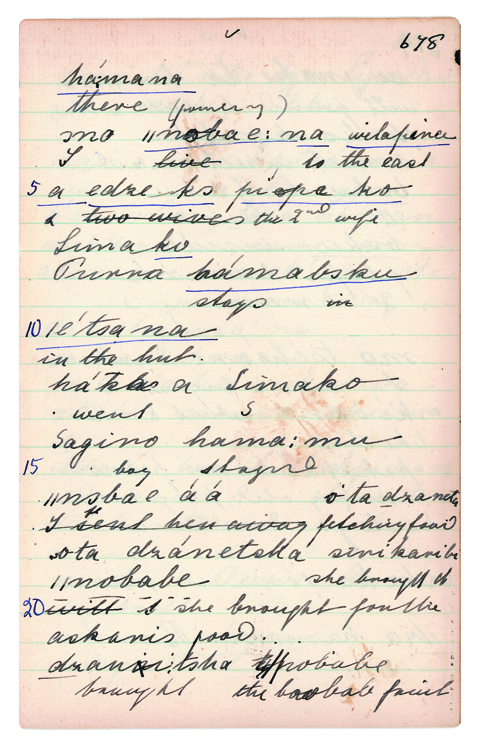 678
hámana
there (journey)
mo ǁnobae: na wilapinee
I ~~live~~ to the east
5 a edze ko piope ko
& ~~two wives~~ the 2nd wife
Simako
Purra hámabsku
stays in
10 iétsa na
in the hut.
a Simako
. went S
Sagino hama: mu
15 . boy stayed
ǁnobae áá o ta dzaneta
I ~~sent her away~~ fetching food
.ota dzánetsha
ǁnobabe she brought it
20 ~~with~~ she brought for the
askaris food...
dzanitsha ǁnobabe
brought the baobab fruit